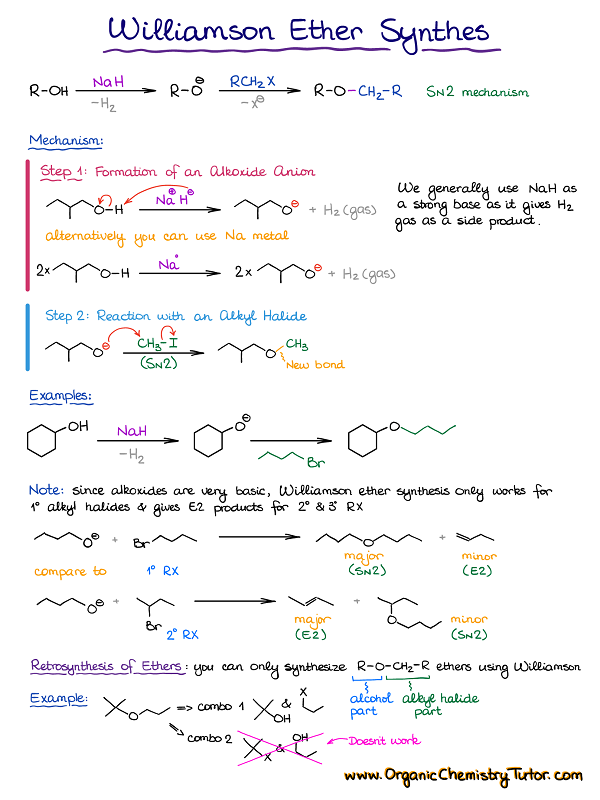 Williamson Ether Synthes
R-OH NaH -H₂ R-O⊖ RCH₂X -X⊖ R-O-CH₂-R SN2 mechanism
Mechanism:
Step 1: Formation of an Alkoxide Anion
O-H Na⊕ H⊖ O⊖ + H₂ (gas)
We generally use NaH as
a strong base as it gives H₂
gas as a side product.
alternatively you can use Na metal
2x O-H Na° 2x O⊖ + H₂ (gas)
Step 2: Reaction with an Alkyl Halide
O⊖ CH₃-I (SN2) O CH₃
New bond
Examples:
OH NaH -H₂ O⊖ Br O
Note: since alkoxides are very basic, Williamson ether synthesis only works for
1° alkyl halides & gives E2 products for 2° & 3° RX
O⊖ + Br O +
compare to 1° RX major (SN2) minor (E2)
O⊖ + Br + O
2° RX major (E2) minor (SN2)
Retrosynthesis of Ethers: you can only synthesize R-O-CH₂-R ethers using Williamson
alcohol part alkyl halide part
Example: O => combo 1 OH & X
=> combo 2 X & OH Doesn't work
www.OrganicChemistryTutor.com